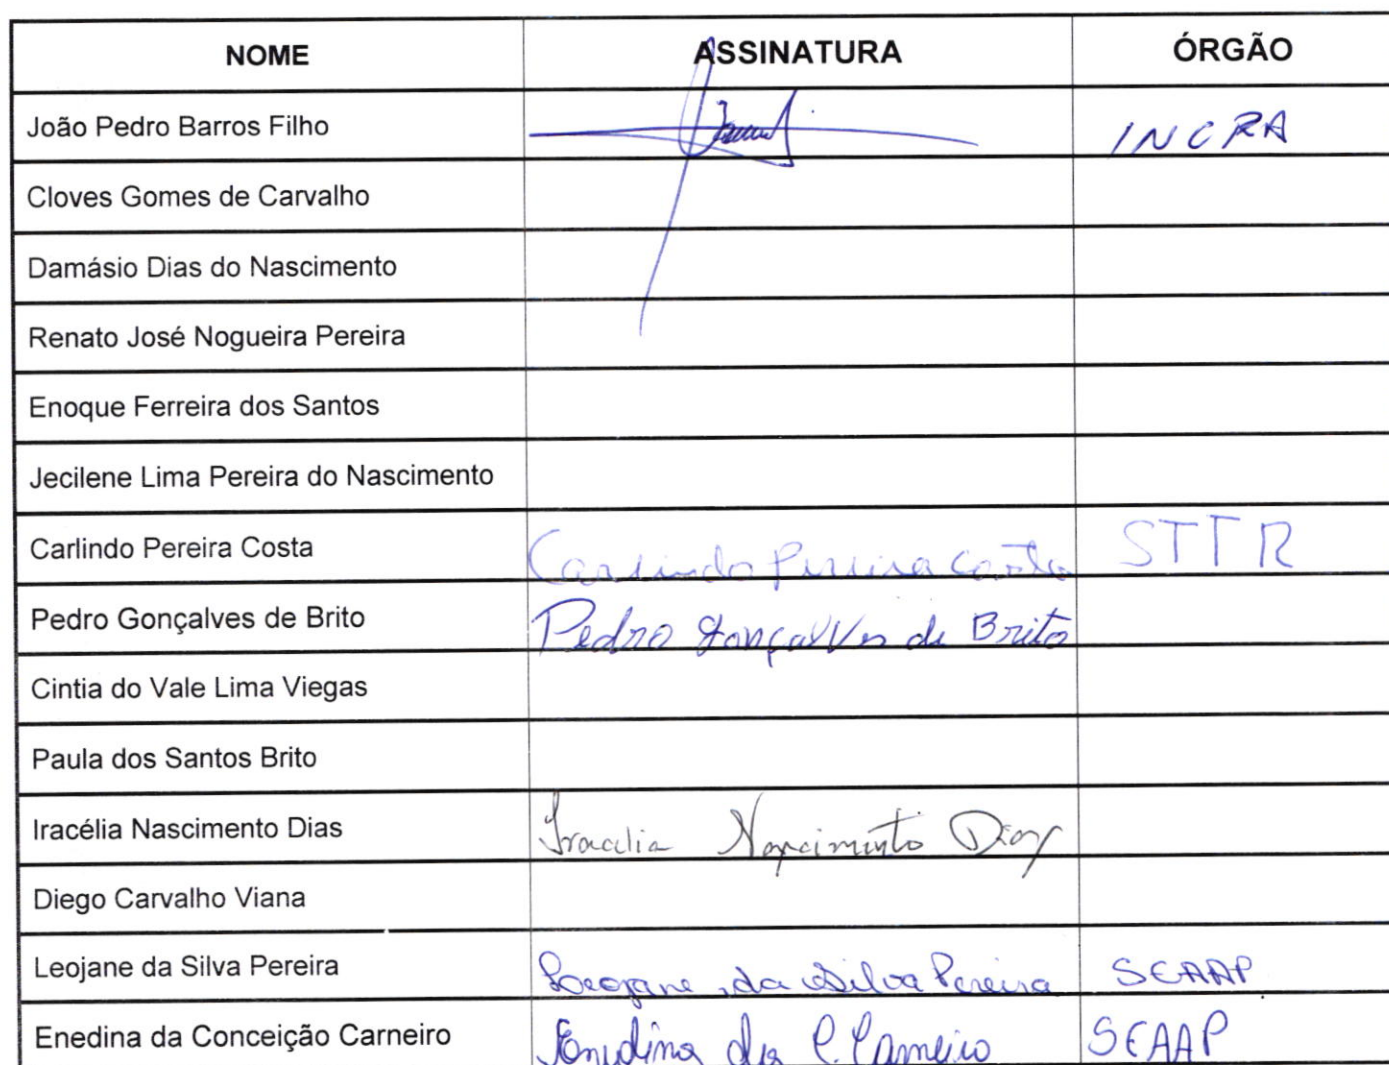 NOME ASSINATURA ÓRGÃO
João Pedro Barros Filho INCRA
Cloves Gomes de Carvalho
Damásio Dias do Nascimento
Renato José Nogueira Pereira
Enoque Ferreira dos Santos
Jecilene Lima Pereira do Nascimento
Carlindo Pereira Costa Carlindo Pereira Costa STTR
Pedro Gonçalves de Brito Pedro Gonçalves de Brito
Cintia do Vale Lima Viegas
Paula dos Santos Brito
Iracélia Nascimento Dias Iracelia Nascimento Dias
Diego Carvalho Viana
Leojane da Silva Pereira Leojane da Silva Pereira SEAAP
Enedina da Conceição Carneiro Enedina da C. Carneiro SEAAP